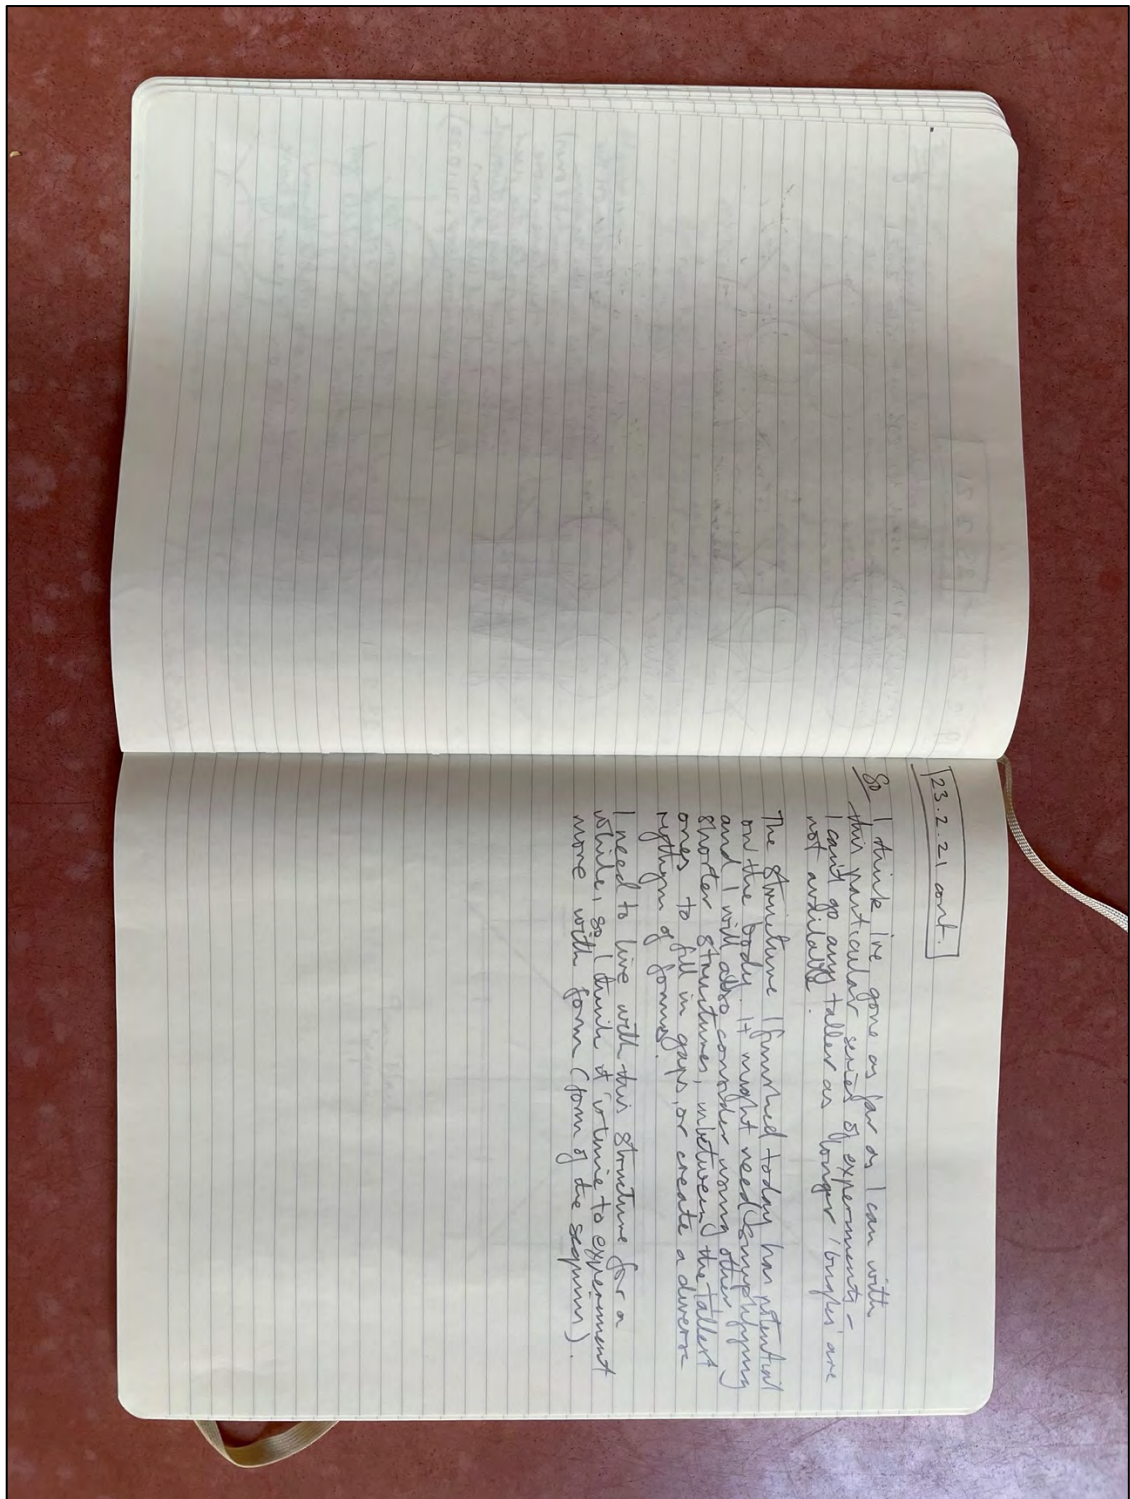 23.2.21 cont.
So I think I've gone as far as I can with
this particular series of experiments -
I can't go any taller as longer 'bugles' are
not available.
The structure I finished today has potential
on the body. It might need simplifying
and I will also consider using other
shorter structures, inbetween the tallest
ones to fill in gaps, or create a diverse
rythym of forms.
I need to live with this structure for a
while, so I think it's time to experiment
more with form (form of the sequins).